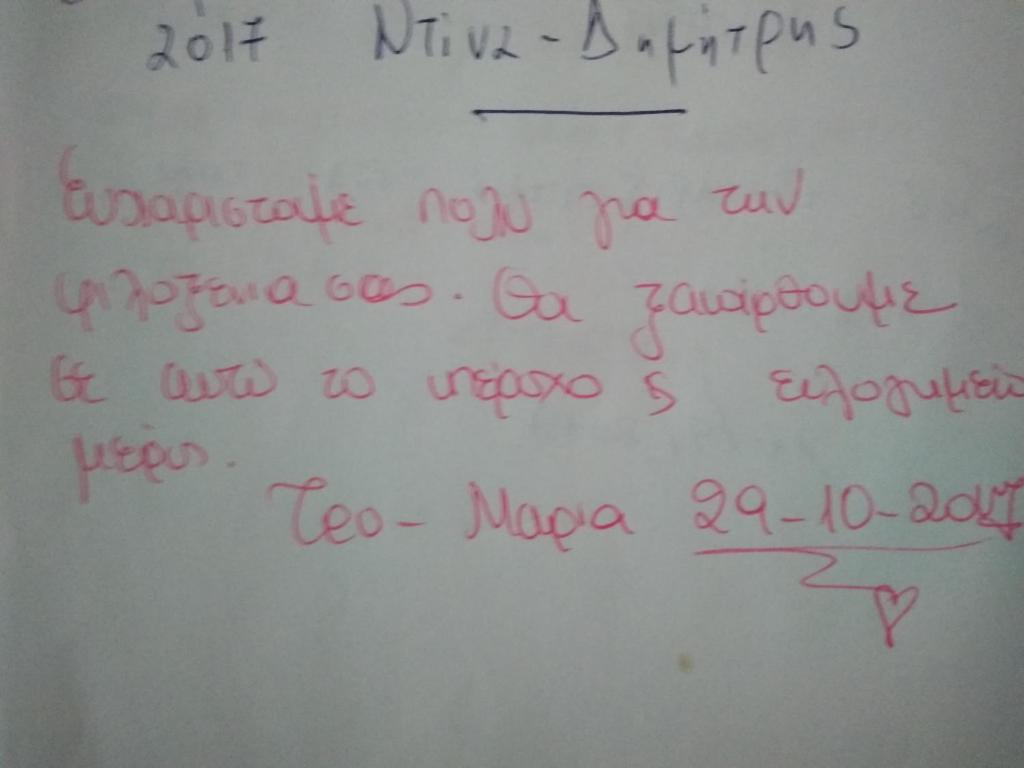 2017 Ντίνα - Δημήτρης
Ευχαρισταμε πολυ για την
φιλοξενια σας. Θα ξαναέρθουμε
σε αυτό το υπέροχο ς ευλογημενο
μερος.
Τεο - Μαρια 29-10-2017